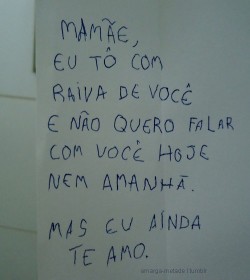 MAMÃE,
EU TÔ COM
RAIVA DE VOCÊ
E NÃO QUERO FALAR
COM VOCÊ HOJE
NEM AMANHÃ.
MAS EU AINDA
TE AMO.